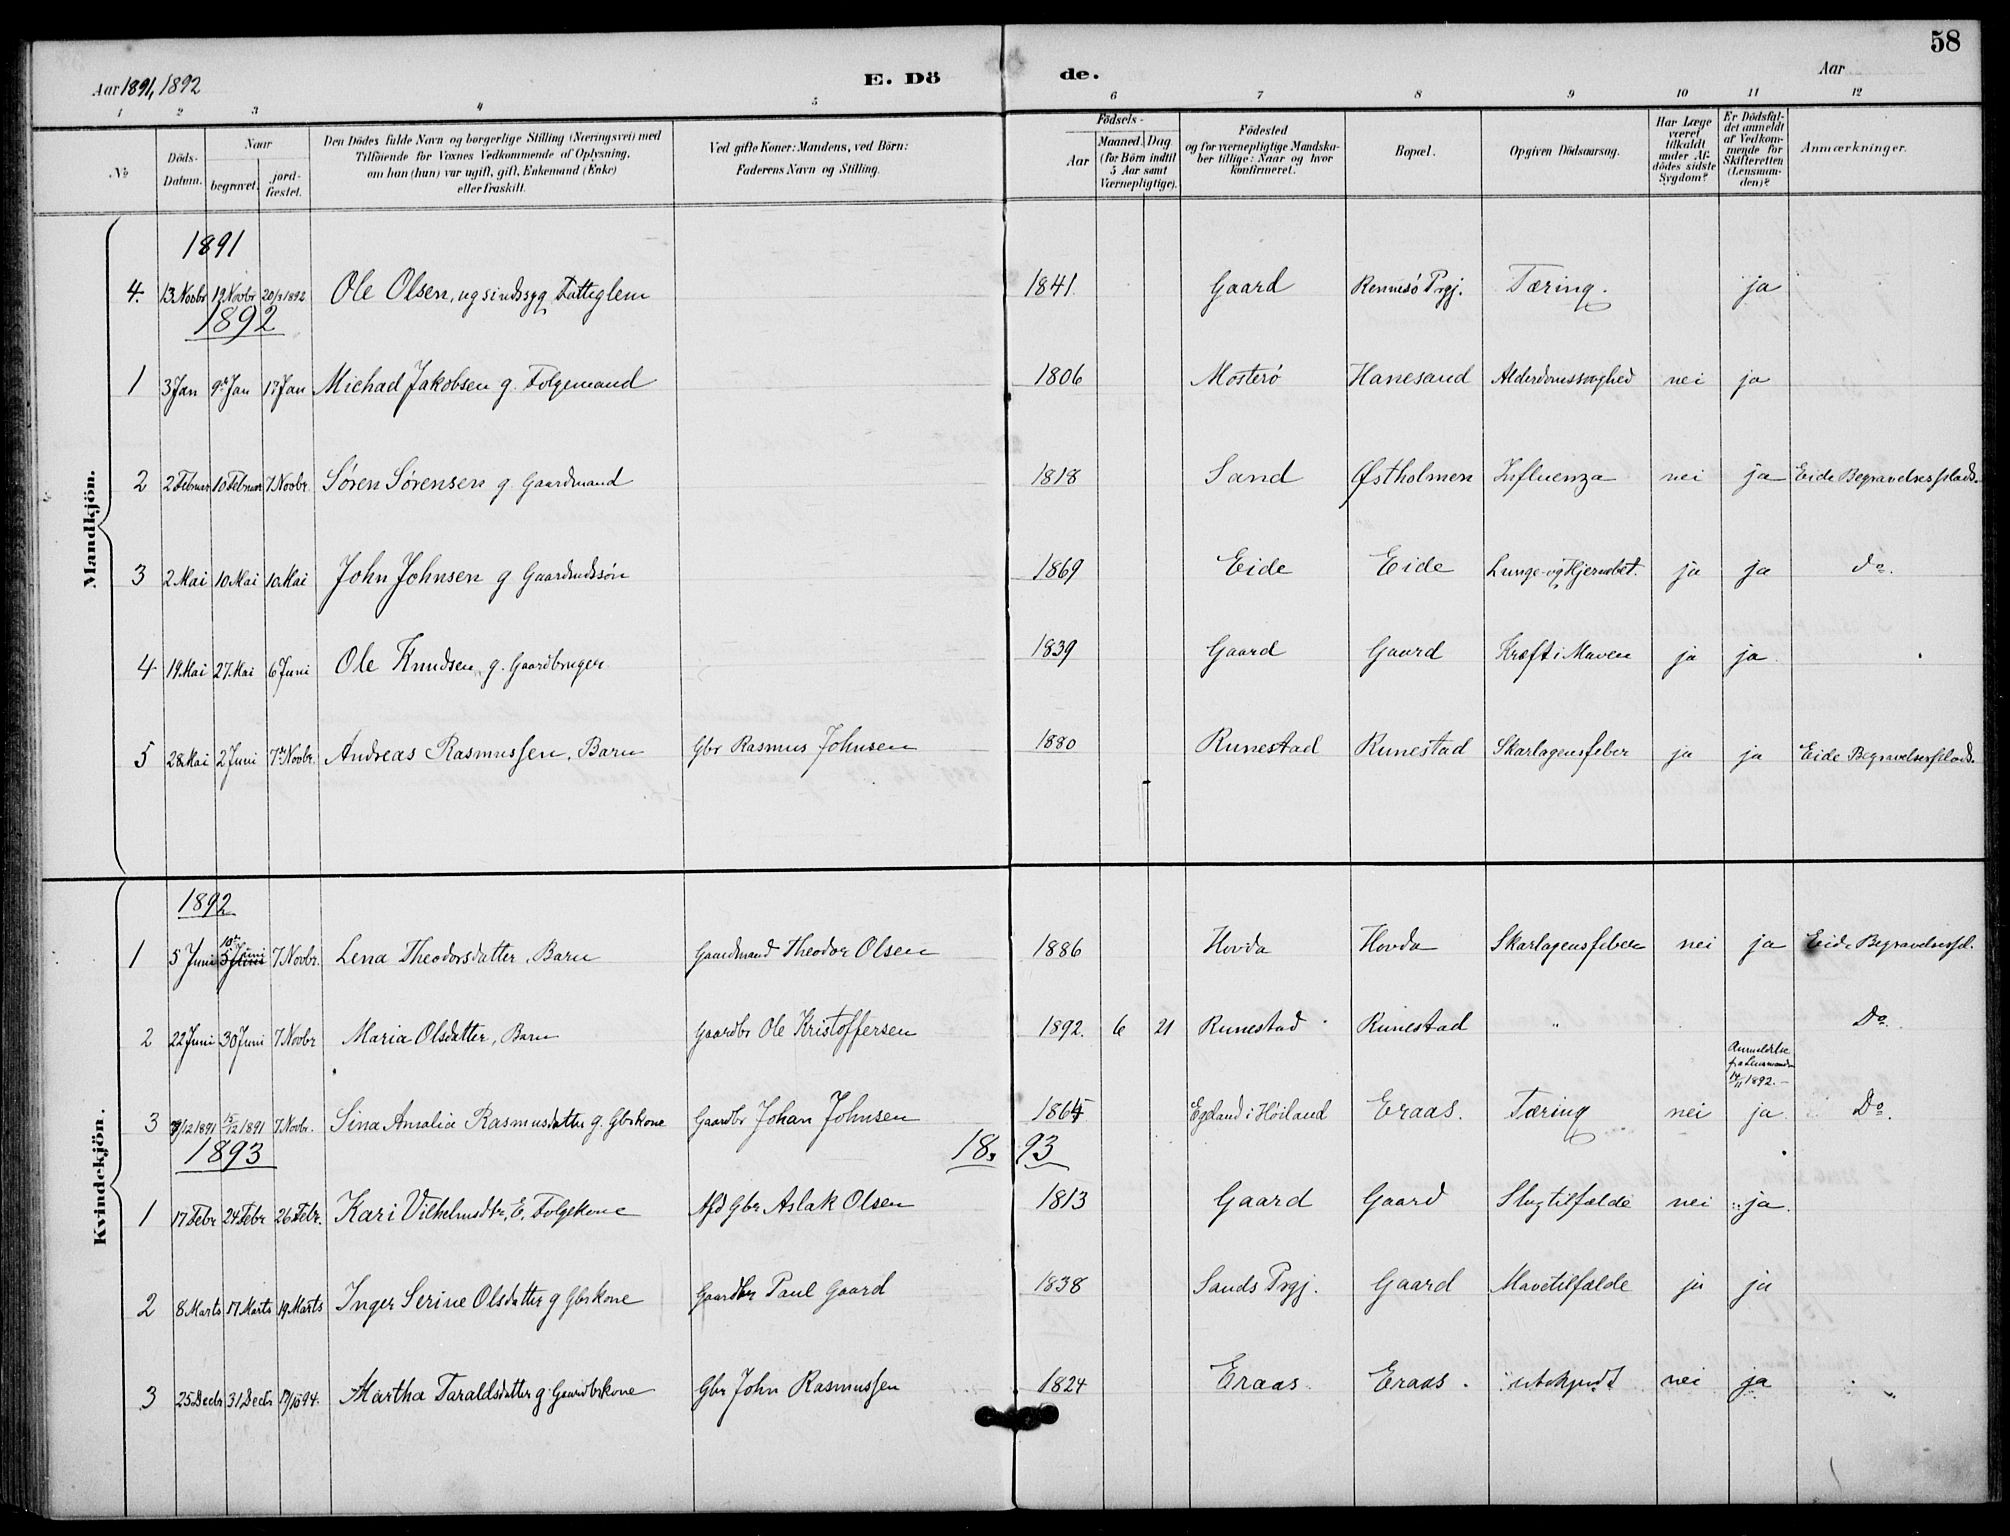 58
Aar 1891, 1892
E. Dö
de.
Aar
1 2 3 4 5 6 7 8 9 10 11 12
No
Döds-Datum.
Naar
begravet.
jord-fæstet.
Den Dödes fulde Navn og borgerlige Stilling (Næringsvei) med
Tilföiende for Voxnes Vedkommende af Oplysning.
om han (hun) var ugift, gift, Enkemand (Enke)
eller fraskilt.
Ved gifte Koner: Mandens, ved Börn:
Faderens Navn og Stilling.
Födsels-
Aar
Maaned. Dag
(for Börn indtil
5 Aar samt
Værnepligtige).
Födested
og for værnepligtige Mandska-
ber tillige: Naar og hvor
konfirmeret.
Bopæl.
Opgiven Dödsaarsag.
Har Læge
været
tilkaldt
under Af-
dödes sidste
Sygdom?
Er Dödsfal-
det anmeldt
af Vedkom-
mende for
Skifteretten
(Lensman-
den)?
Anmærkninger.
Mandkjön.
1891
4. 13 Novbr 19 Novbr 20/3 1892 Ole Olsen, ug sindssyg Fattiglem 1841 Gaard Rennesö Prgj. Tæring. ja
1892
1 3 Jan 9de Jan 17 Jan Michael Jakobsen g. Folgemand 1806 Mosterö Hanesand Alderdomssvaghed nei ja
2 2 Februar 10 Februar 7 Novbr. Søren Sørensen g. Gaardmand 1818 Sand Østholmen Influenza nei ja Eide Begravelsesplads.
3 2 Mai 10 Mai 10 Mai John Johnsen g Gaardmdssøn 1869 Eide Eide Lunge- og Hjernebet. ja ja do.
4 19 Mai 27 Mai 6 Juni Ole Knudsen, g. Gaardbruger 1839 Gaard Gaard Kræft i Maven ja ja
5 28 Mai 2 Juni 7de Novbr. Andreas Rasmussen, Barn Gbr Rasmus Johnsen 1880 Runestad Runestad Skarlagensfeber ja ja Eide Begravelsesplads.
Kvindekjön.
1892
10de Juni
1 5 Juni 7 Novbr. Lena Theodorsdatter, Barn Gaardmand Theodor Olsen 1886 Hovda Hovda Skarlagensfeber nei ja Eide Begravelsespl.
2 22 Juni 30 Juni 7 Novbr Maria Olsdatter, Barn Gaardbr Ole Kristoffersen 1892. 6 21 Runestad Runestad " Do.
Anmeldelse
fra Lensmanden
14/11 1892.
3 8/12 1891 15/12 1891 7 Novbr. Sina Amalia Rasmusdatter g. Gbrkone Gaardbr Johan Johnsen 1865 Egeland i Høiland Eraas. Tæring nei ja Do.
1893 18 93
1 17 Febr 24 Febr 26 Febr. Kari Vilhelmsdtr, E. Folgekone Afd Gbr Aslak Olsen 1813 Gaard Gaard Slagtilfælde nei ja.
2 8 Marts 17 Marts 19 Marts Inger Serine Olsdatter g Gbrkone Gaardbr Paul Gaard 1838 Sands Prgj. Gaard Mavetilfælde ja ja
3 25 Decbr 31 Decbr 94. Martha Taraldsdatter g Gaardbrkone Gbr John Rasmussen 1824 Eraas. Eraas. ubekjendt nei ja